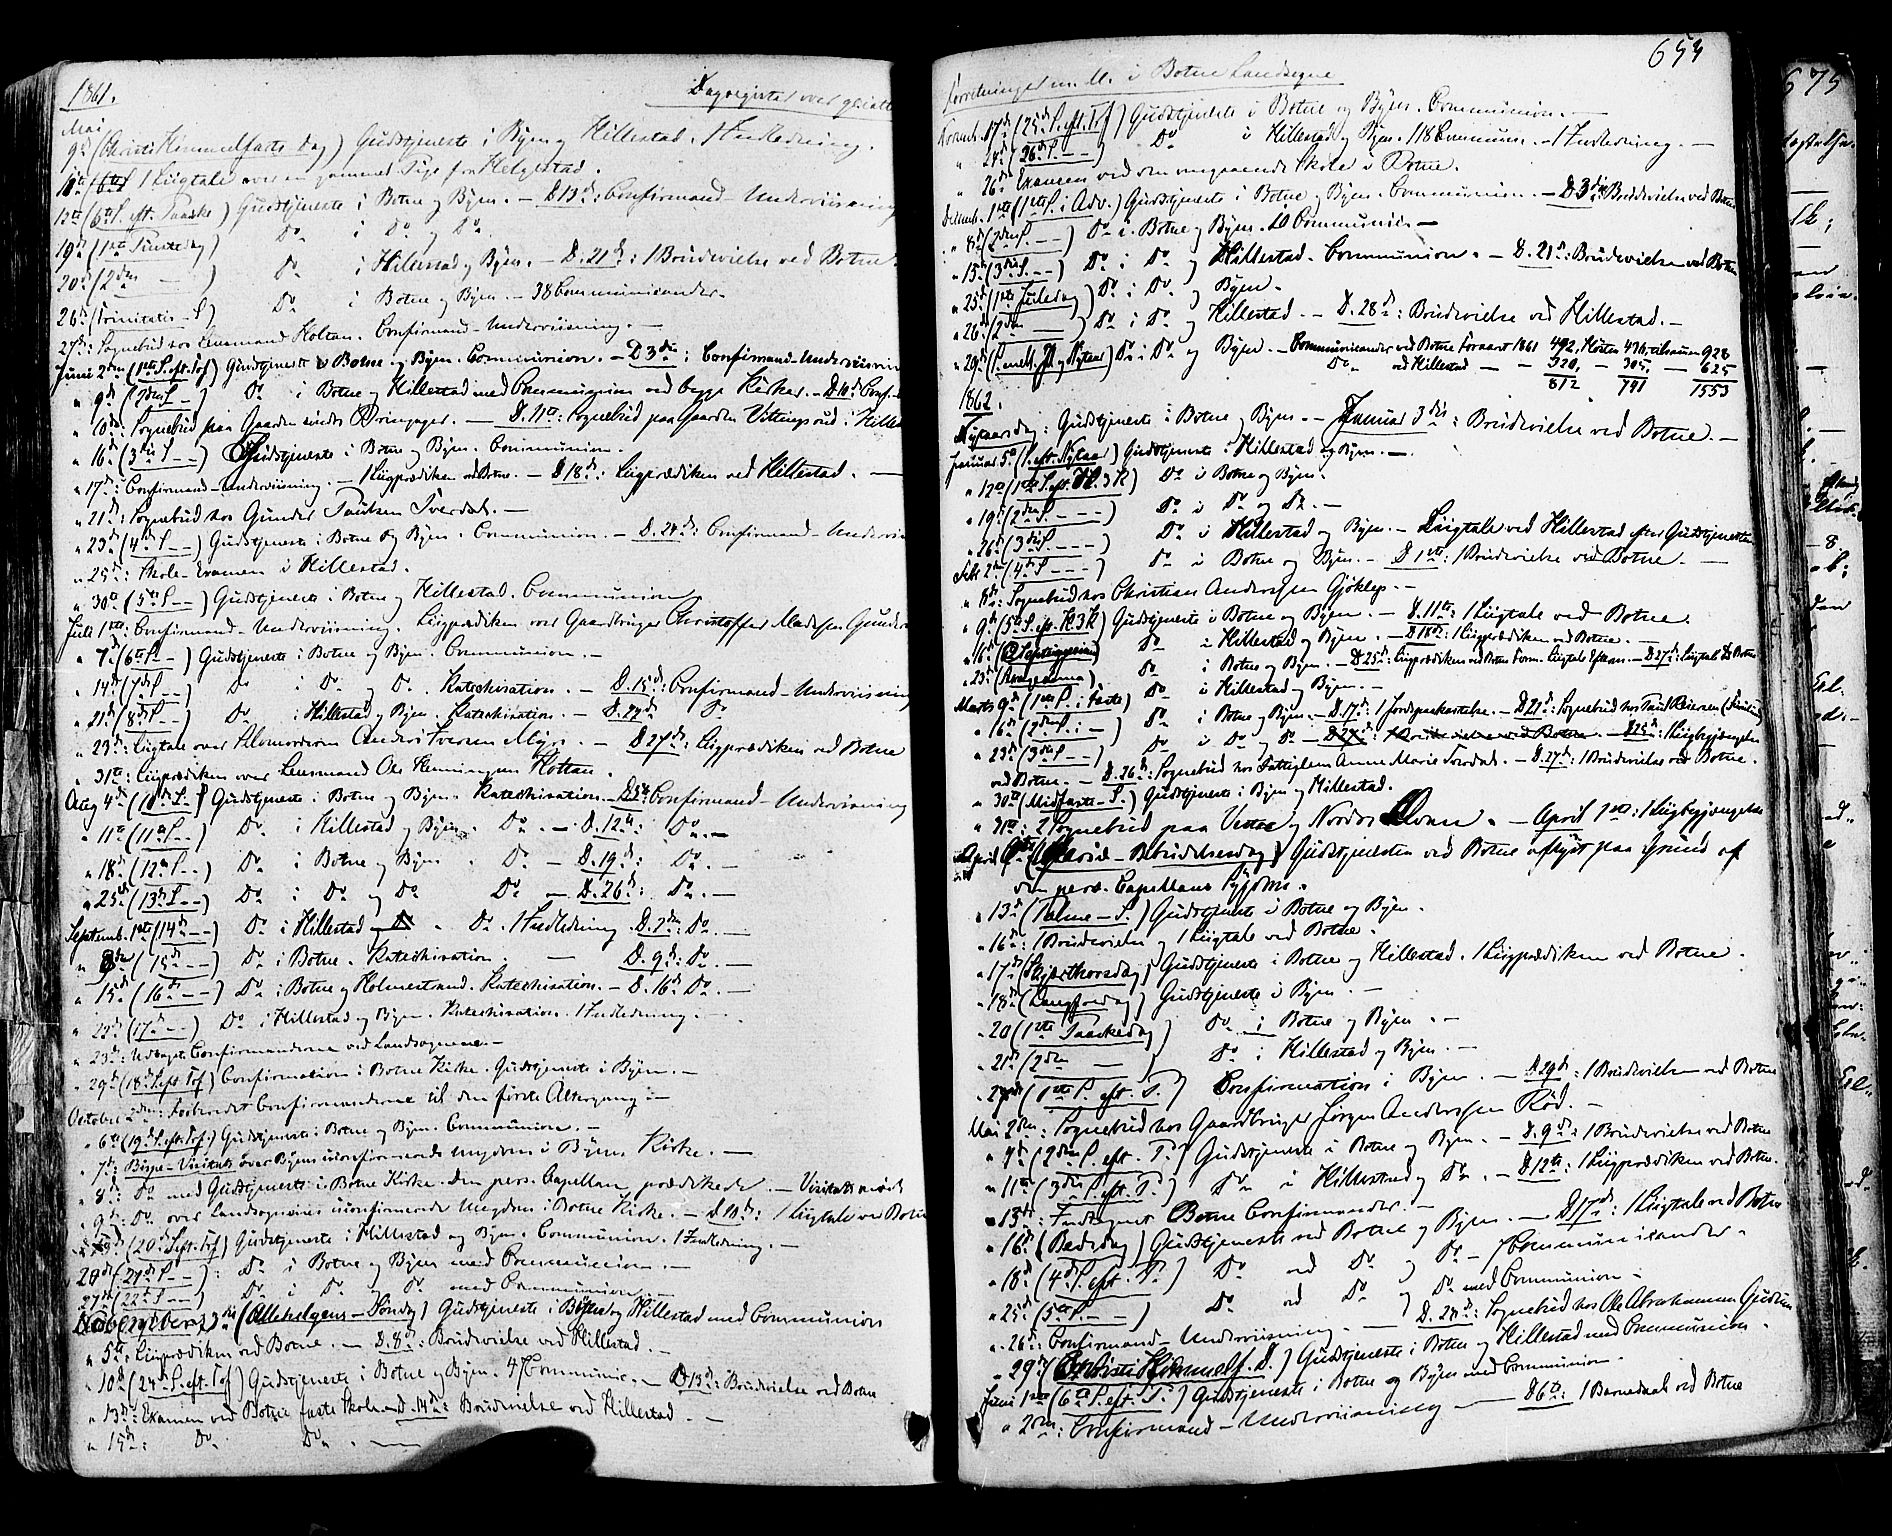 1861.
Dagregister over geistl
Mai
9de (Christi Himmelfarts Dag) Gudstjeneste i Byen og Hillestad. 1 Indledning.
1 Liigtale over en gammel Pige fra Helgestad.
12te (6te S. eft. Paaske) Gudstjeneste i Botne og Byen. – D. 13de: Confirmand-Underviisning
19de (1ste Pintsedag) Do i Do og Do.
20de (2den — ) Do i Hillestad og Byen. – D. 21de: 1 Brudevielse ved Botne.
26de (Trinitatis-S.) Do i Botne og Byen. – 38 Communicander.
27de: Sognebud hos Lensmand Holtan. Confirmand-Underviisning. —
Juni 2den (1ste S. eft. Tref) Gudstjeneste i Botne og Byen. Communion. – D. 3die: Confirmand-Underviisn
" 9de (2den S. –) Do i Botne og Hillestad med Communion ved begge Kirker. – D. 10de Conf.
" 10de: Sognebud paa Gaarden – D. 11te: Sognebud paa Gaarden Vittingsrud i Hilles
" 16de (3die S. – –) Gudstjeneste i Botne og Byen. Communion.
" 17de: Confirmand-Underviisning. – Liigprædiken ved Botne. – D. 18de: Liigprædiken ved Hillestad. —
" 21de: Sognebud hos Gunder Paulsen Tverdal. –
" 23de (4de S. – –) Gudstjeneste i Botne og Byen. Communion. – D. 24de: Confirmand-Undervi
" 25de: Skole-Examen i Hillestad.
" 30te (5te S. – –) Gudstjeneste i Botne og Hillestad. Communion
Juli 1ste: Confirmand-Underviisning. Liigprædiken over Gaardbruger Christoffer Madsen Gunder
" 7de (6te S. –) Gudstjeneste i Botne og Byen. Communion. –
" 14de (7de S. – –) Do i Do og Do. Katechisation. – D. 15de: Confirmand-Underviisning
" 21de (8de S. – –) Do i Hillestad og Byen. Katechisation. – D. 22de Do
" 23de: Liigtale over Anders Iversen – D. 27de: Liigprædiken ved Botne
" 31te: Liigprædiken over Lensmand Ole Henningsen Holtan.
Aug 4de (10de S. –) Gudstjeneste i Botne og Byen. Katechisation. – D. 5te Confirmand-Underviisning
" 11te (11te S. – –) Do i Hillestad og Byen. Do. – D. 12te: Do. –
" 18de (12te S. – –) Do i Botne og Byen. Do – D. 19de: Do. –
" 25de (13de S. – –) Do i Do og Do Do – D. 26de: Do. –
Septemb. 1ste (14de – –) Do i Hillestad. Do. 1 Indledning. D. 2den: Do. –
" 8de (15de – – –) Do i Botne. Katechisation. – D. 9de: Do. –
" 15de (16de – – –) Do i Botne og Holmestrand. Katechisation. – D. 16de Do. –
" 22de (17de – –) Do i Hillestad og Byen. Katechisation. 1 Indledning. –
" 23de: Confirmanderne ved Landsognene –
" 29de (18de S. eft. Tref) Confirmation i Botne Kirke. Gudstjeneste i Byen. –
October 2den: Forberedet Confirmanderne til den første Altergang –
" 6te (19de S. eft. Tref.) Gudstjeneste i Botne og Byen. Communion. –
" 7de: Bispe-Visitats over Byens uconfirmerede Ungdom i Byens Kirke. –
" 8de: Do med Gudstjeneste i Botne Kirke. Den pers. Capellan prædikede. – Visitatsmøde
" 9de: Do over Landsognenes uconfirmerede Ungdom i Botne Kirke. – D. 10de: 1 Liigtale ved Botne
" 13de (20de S. eft. Tref) Gudstjeneste i Hillestad og Byen. Communion. 1 Indledning. –
" 20de (21de S. – –): Do i Botne og Byen med Communion. –
" 27de (22de S. – –) Do i Do og Do med Communion –
November 3die (Allehelgens-Søndag) Gudstjeneste i Botne og Hillestad med Communion
" 5te: Liigprædiken ved Botne. – D. 8de: Brudevielse ved Hillestad. –
" 10de (24de S. eft. Tref) Gudstjeneste i Botne og Byen. 4 Communic. – D. 13de: Brudevielse ved Botne
" 13de: Examen ved Botne faste Skole. – D. 14de: Brudevielse ved Hillestad. –
" 15de: Do Do. —
653
Forretninger m. M. i Botne Landsogne
Novemb. 17de (25de S. eft. Tref) Gudstjeneste i Botne og Byen. Communion. —
" 24de (26de S. – –) Do i Hillestad og Byen. 118 Commun. – 1 Indledning. —
" 26de Examen ved den omgaaende Skole i Botne.
Decemb. 1ste (1ste S. i Adv.) Gudstjeneste i Botne og Byen. Communion. – D. 3die Brudevielse ved Botne
" 8de (2den S. – –) Do i Botne og Byen. Communion –
" 15de (3die S. – –) Do i Do og Hillestad. Communion. – D. 21de: Brudevielse ved Botne
" 25de (1ste Juledag) Do i Do og Byen.
" 26de (2den —) Do i Do og Hillestad. – D. 28de: Brudevielse ved Hillestad. –
" 29de (S. mell. Jul og Nytaar) Do i Do og Byen. – Communicander ved Botne Foraaret 1861 492, Høsten 436, tilsammen 928
Do ved Hillestad — 320, – 305, – 625
812 – 741 1553
1862.
Nytaarsdag: Gudstjeneste i Botne og Byen. – Januar 3die: Brudevielse ved Botne. –
Januar 5te (S. eft. Nytaar) Gudstjeneste i Hillestad og Byen. –
" 12te (1ste S. eft. H. 3 K) Do i Botne og Byen.
" 19de (2den S. – – –) Do i Do og Do. –
" 26de (3die S. – – –) Do i Hillestad og Byen. – Liigtale ved Hillestad efter Gudstjenesten
Feb. 2den (4de S. – – –) Do i Botne og Byen. – D. 1ste: 1 Brudevielse ved Botne. –
" 8de: Sognebud hos Christian Anderssen Gjøklep. –
" 9de (5te S. eft. H. 3 K) Gudstjeneste i Botne og Byen. – D. 11te: 1 Liigtale ved Botne.
" 16de (Septuagesima) Do i Hillestad og Byen. – D. 18de: 1 Liigprædiken ved Botne. –
" 23de Do i Botne og Byen. – D. 25de: Liigprædiken ved Botne Form. Liigtale Efterm. – D. 27de: Liigtale ved Botne
Marts 9de (1ste S. i Faste) Do i Hillestad og Byen. –
" 16de (2den S. i –) Do i Botne og Byen. – D. 17de: 1 Jordpaakastelse. – D. 21de: Sognebud hos Paul Reiersen
" 23de (3die S. – –) Do i Do og Do – D. 25de: 1 Liigbegjængelse
ved Botne. – D. 26de: Sognebud hos Fattiglem Anne Marie Tverdal. – D. 27de: 1 Brudevielse ved Botne.
" 30te (Midfaste-S.) Gudstjeneste i Byen og Hillestad.
" 31te: 2 Sognebud paa Vestre og Nordre – April 1ste: 1 Liigbegjængelse
April 6te (Mariæ-Bebudelsesdag) Gudstjenesten ved Botne aflyst paa Grund af
den pers. Capellans Sygdom.
" 13de (Palme-S.) Gudstjeneste i Botne og Byen.
" 16de: 1 Brudevielse og 1 Liigtale ved Botne.
" 17de (Skjærthorsdag) Gudstjeneste i Botne og Hillestad. 1 Liigprædiken ved Botne.
" 18de (Langfredag) Gudstjeneste i Byen. –
" 20 (1ste Paaskedag) Do i Botne og Byen. –
" 21de (2den —) Do i Hillestad og Byen. –
" 27de (1ste S. eft. P.) Confirmation i Byen. – D. 29de: 1 Brudevielse ved Botne
Mai 2den: Sognebud hos Gaardbruger Jørgen Anderssen Rød. –
" 4de (2den S. eft. P.) Gudstjeneste i Botne og Byen. – D. 9de: 1 Brudevielse ved Botne
" 11te (3die S. eft. P.) Do i Hillestad og Do. – D. 12te: 1 Liigprædiken ved Botne.
" 13de: Indtegnet Botne Confirmander. –
" 16de (Bededag) Gudstjeneste ved Botne og Byen. – D. 17de: 1 Liigtale ved Botne
" 18de (4de S. eft. P.) Do ved Do og Do – 7 Communicander.
" 25de (5te S. – –) Do ved Do og Do med Communion –
" 26de: Confirmand-Underviisning. — D. 28de: Sognebud hos Ole Abrahamsen
" 29de (Christi Himmelf. D.) Gudstjeneste i Botne og Hillestad med Communion.
Juni 1ste (6te S. eft. P.) Gudstjeneste i Botne og Byen med Communion.
" 2den: Confirmand-Underviisning — D. 6te: 1 Barnedaab ved Botne
675